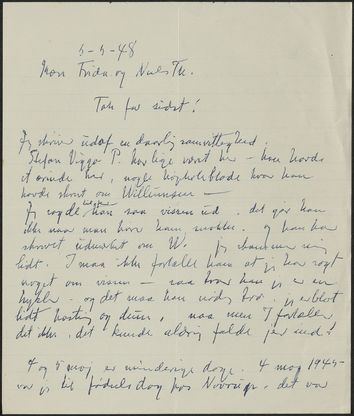 5-5-48
Kære Frida og Niels Th.
Tak for sidst!
Jeg skriver udaf en daarlig samvittighed.
Stefan Viggo P. har lige været her - han havde
et ærinde her, nogle hvor han
havde skrevet om Willumsen —
Jeg sagde, han saa vissen ud. det gør han
ikke naar man hører ham snakke. og han har
skrevet udmærket om W. Jeg skammer mig
lidt. I maa ikke fortælle ham at jeg har sagt
noget om vissen — saa tror han jeg er en
hykler - og det maa han nødig tro. jeg er blot
lidt hastig og dum, naa men I fortæller
det ikke. det kunde aldrig falde jer ind!
4 og 5 maj er mindeværdige dage. 4 maj 1945
var jeg til fødselsdag hos . det var